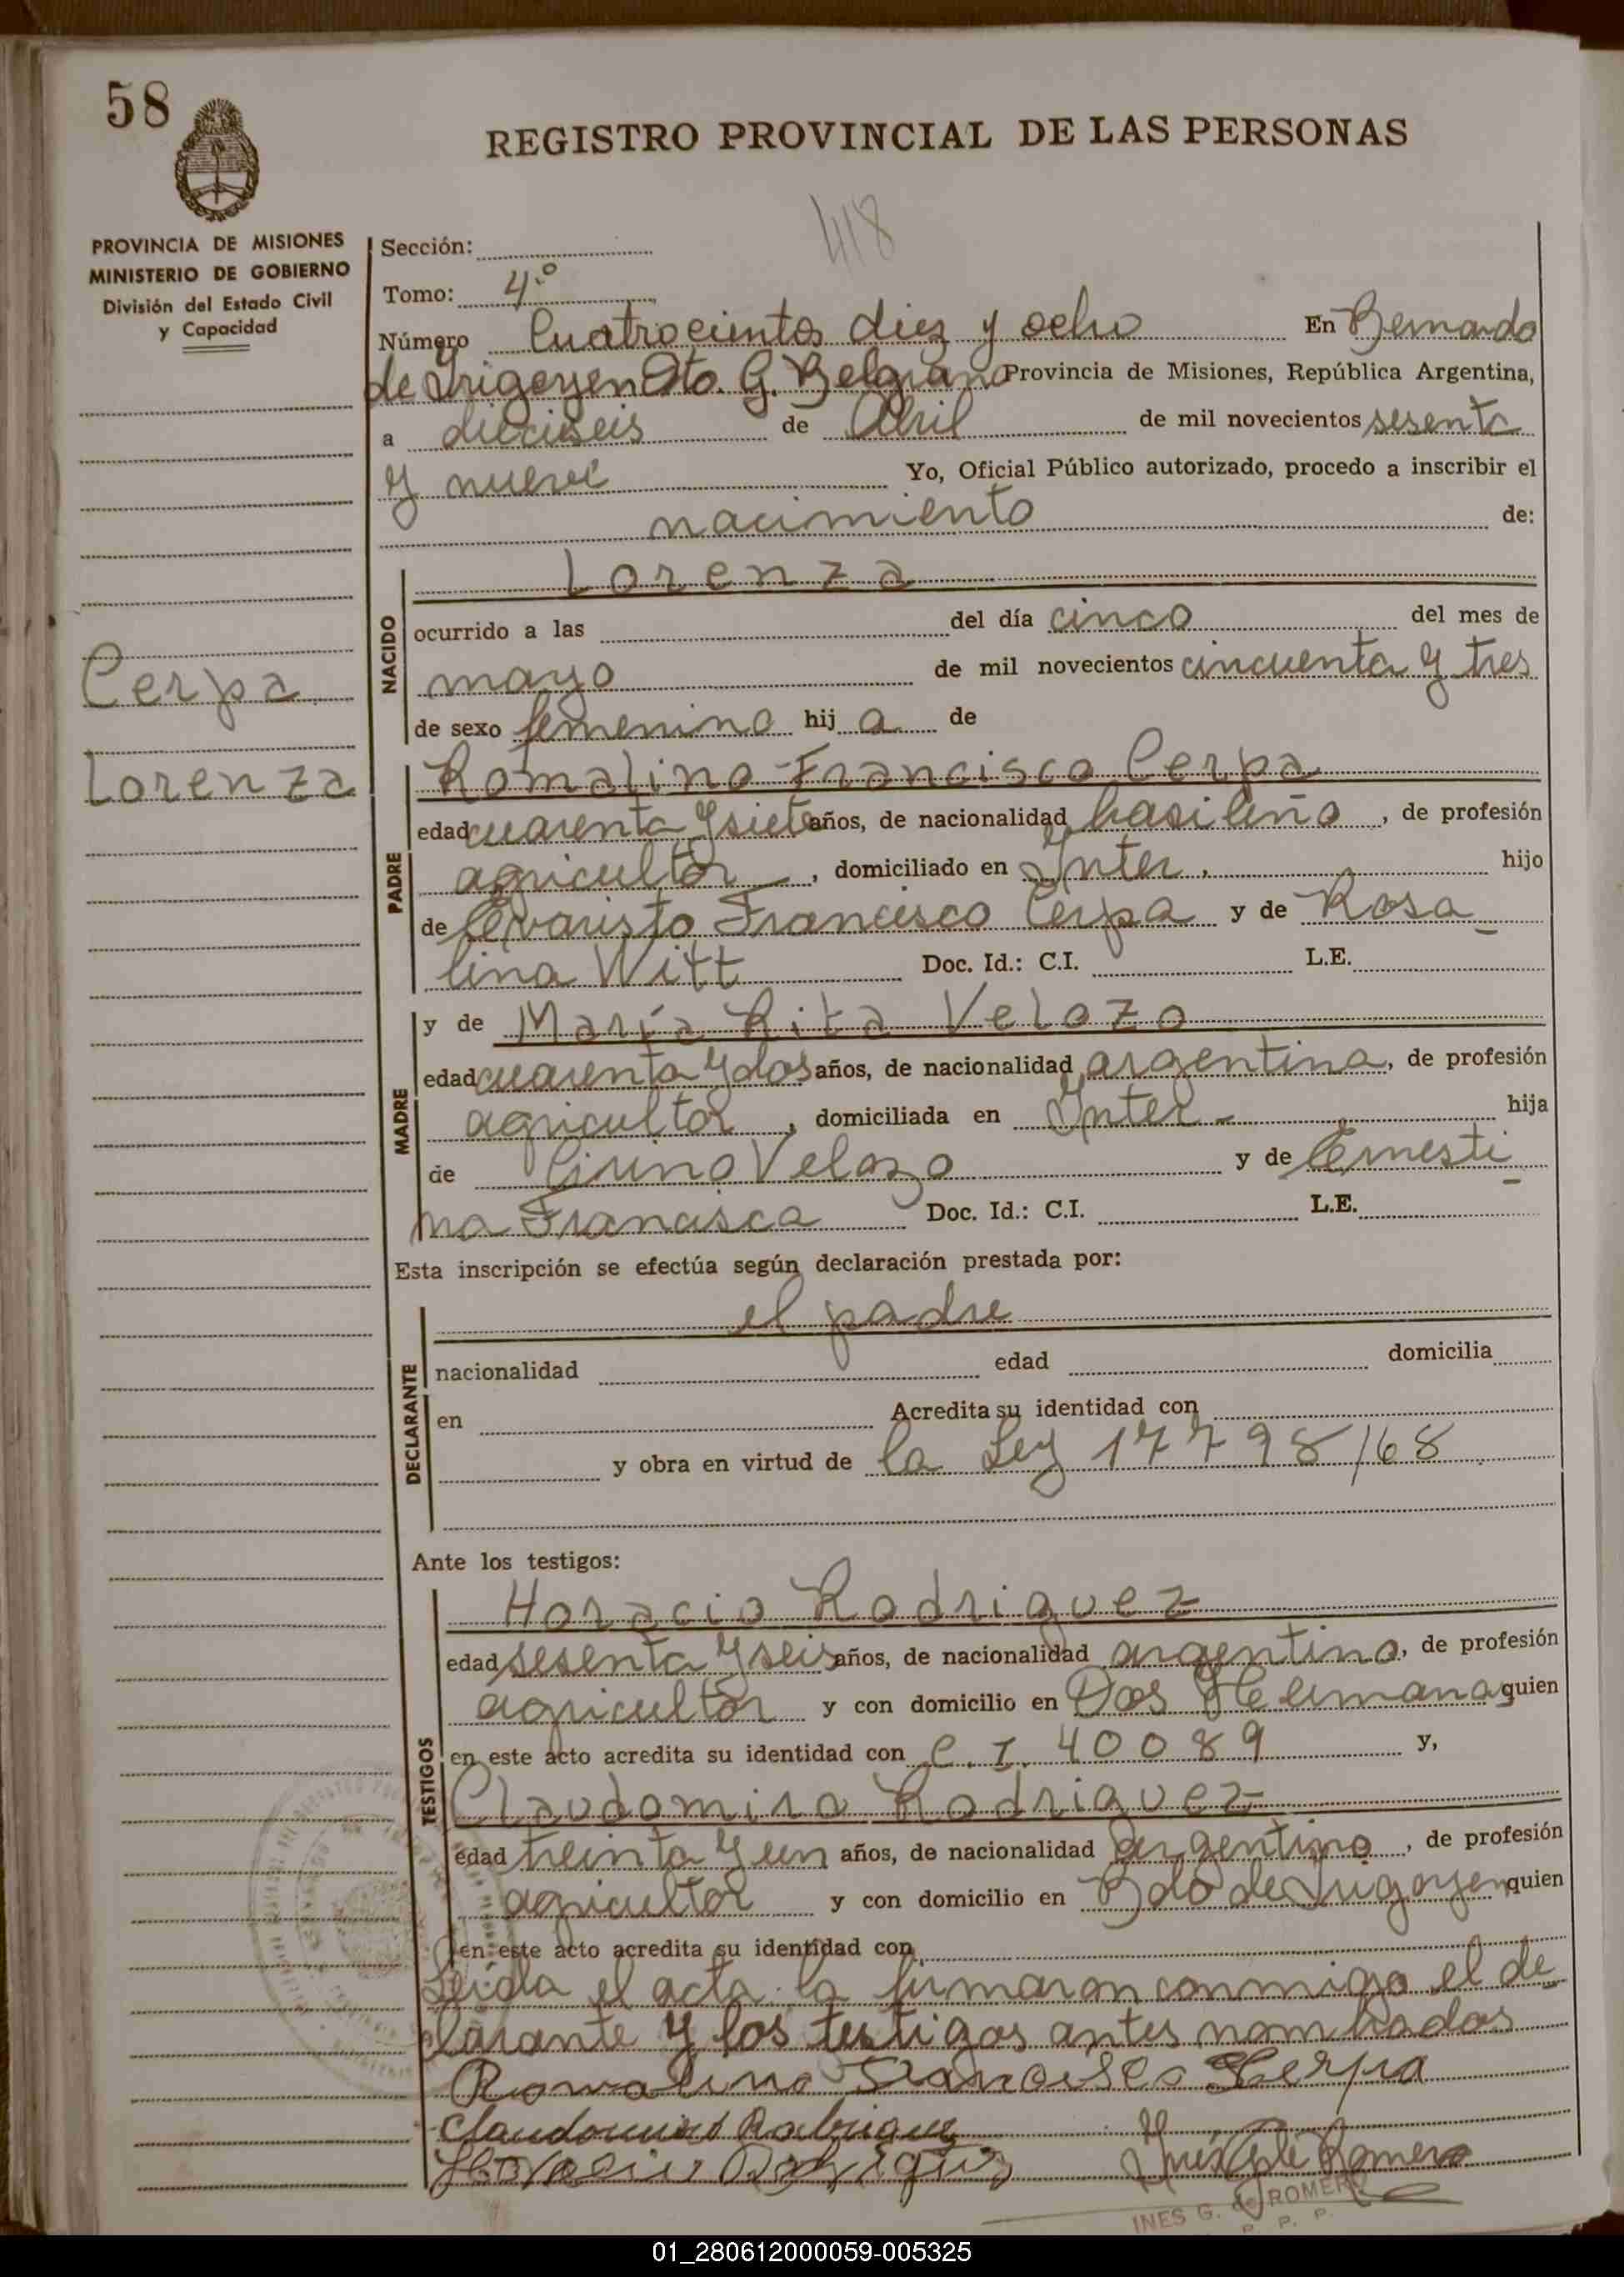 58
REGISTRO PROVINCIAL DE LAS PERSONAS
418
PROVINCIA DE MISIONES
MINISTERIO DE GOBIERNO
División del Estado Civil
y Capacidad
Sección:
Tomo: 4º
Número Cuatrocientos diez y ocho En Bernardo
de Yrigoyen Dto. G. Belgrano Provincia de Misiones, República Argentina,
a dieciseis de Abril de mil novecientos sesenta
y nueve Yo, Oficial Público autorizado, procedo a inscribir el
nacimiento de:
Cerpa
Lorenza
NACIDO
Lorenza
ocurrido a las del día cinco del mes de
mayo de mil novecientos cincuenta y tres
de sexo femenino hij a de
PADRE
Romalino Francisco Cerpa
edad cuarenta y siete años, de nacionalidad basileño, de profesión
agricultor, domiciliado en Ynter, hijo
de Evaristo Francisco Cerpa y de Rosa
lina Witt Doc. Id.: C.I. L.E.
MADRE
y de María Rita Velozo
edad cuarenta y dos años, de nacionalidad argentina, de profesión
agricultor, domiciliada en Ynter - hija
de Velozo y de Ernesti
na Francisca Doc. Id.: C.I. L.E.
Esta inscripción se efectúa según declaración prestada por:
DECLARANTE
el padre
nacionalidad edad domicilia
en Acredita su identidad con
y obra en virtud de la Ley 17798/68
Ante los testigos:
TESTIGOS
Horacio Rodriguez
edad sesenta y seis años, de nacionalidad argentino, de profesión
agricultor y con domicilio en Dos Hermanas quien
en este acto acredita su identidad con C.I. 40089 y,
Claudomiro Rodriguez
edad treinta y un años, de nacionalidad argentino, de profesión
agricultor y con domicilio en Bdo de Yrigoyen quien
en este acto acredita su identidad con
Leída el acta la firmaron conmigo el de
clarante y los testigos antes nombrados
Romalino Francisco Serpa
Claudomiro Rodriguez
Horacio Rodriguez
Romero
INES G. de ROMERO
01_280612000059-005325